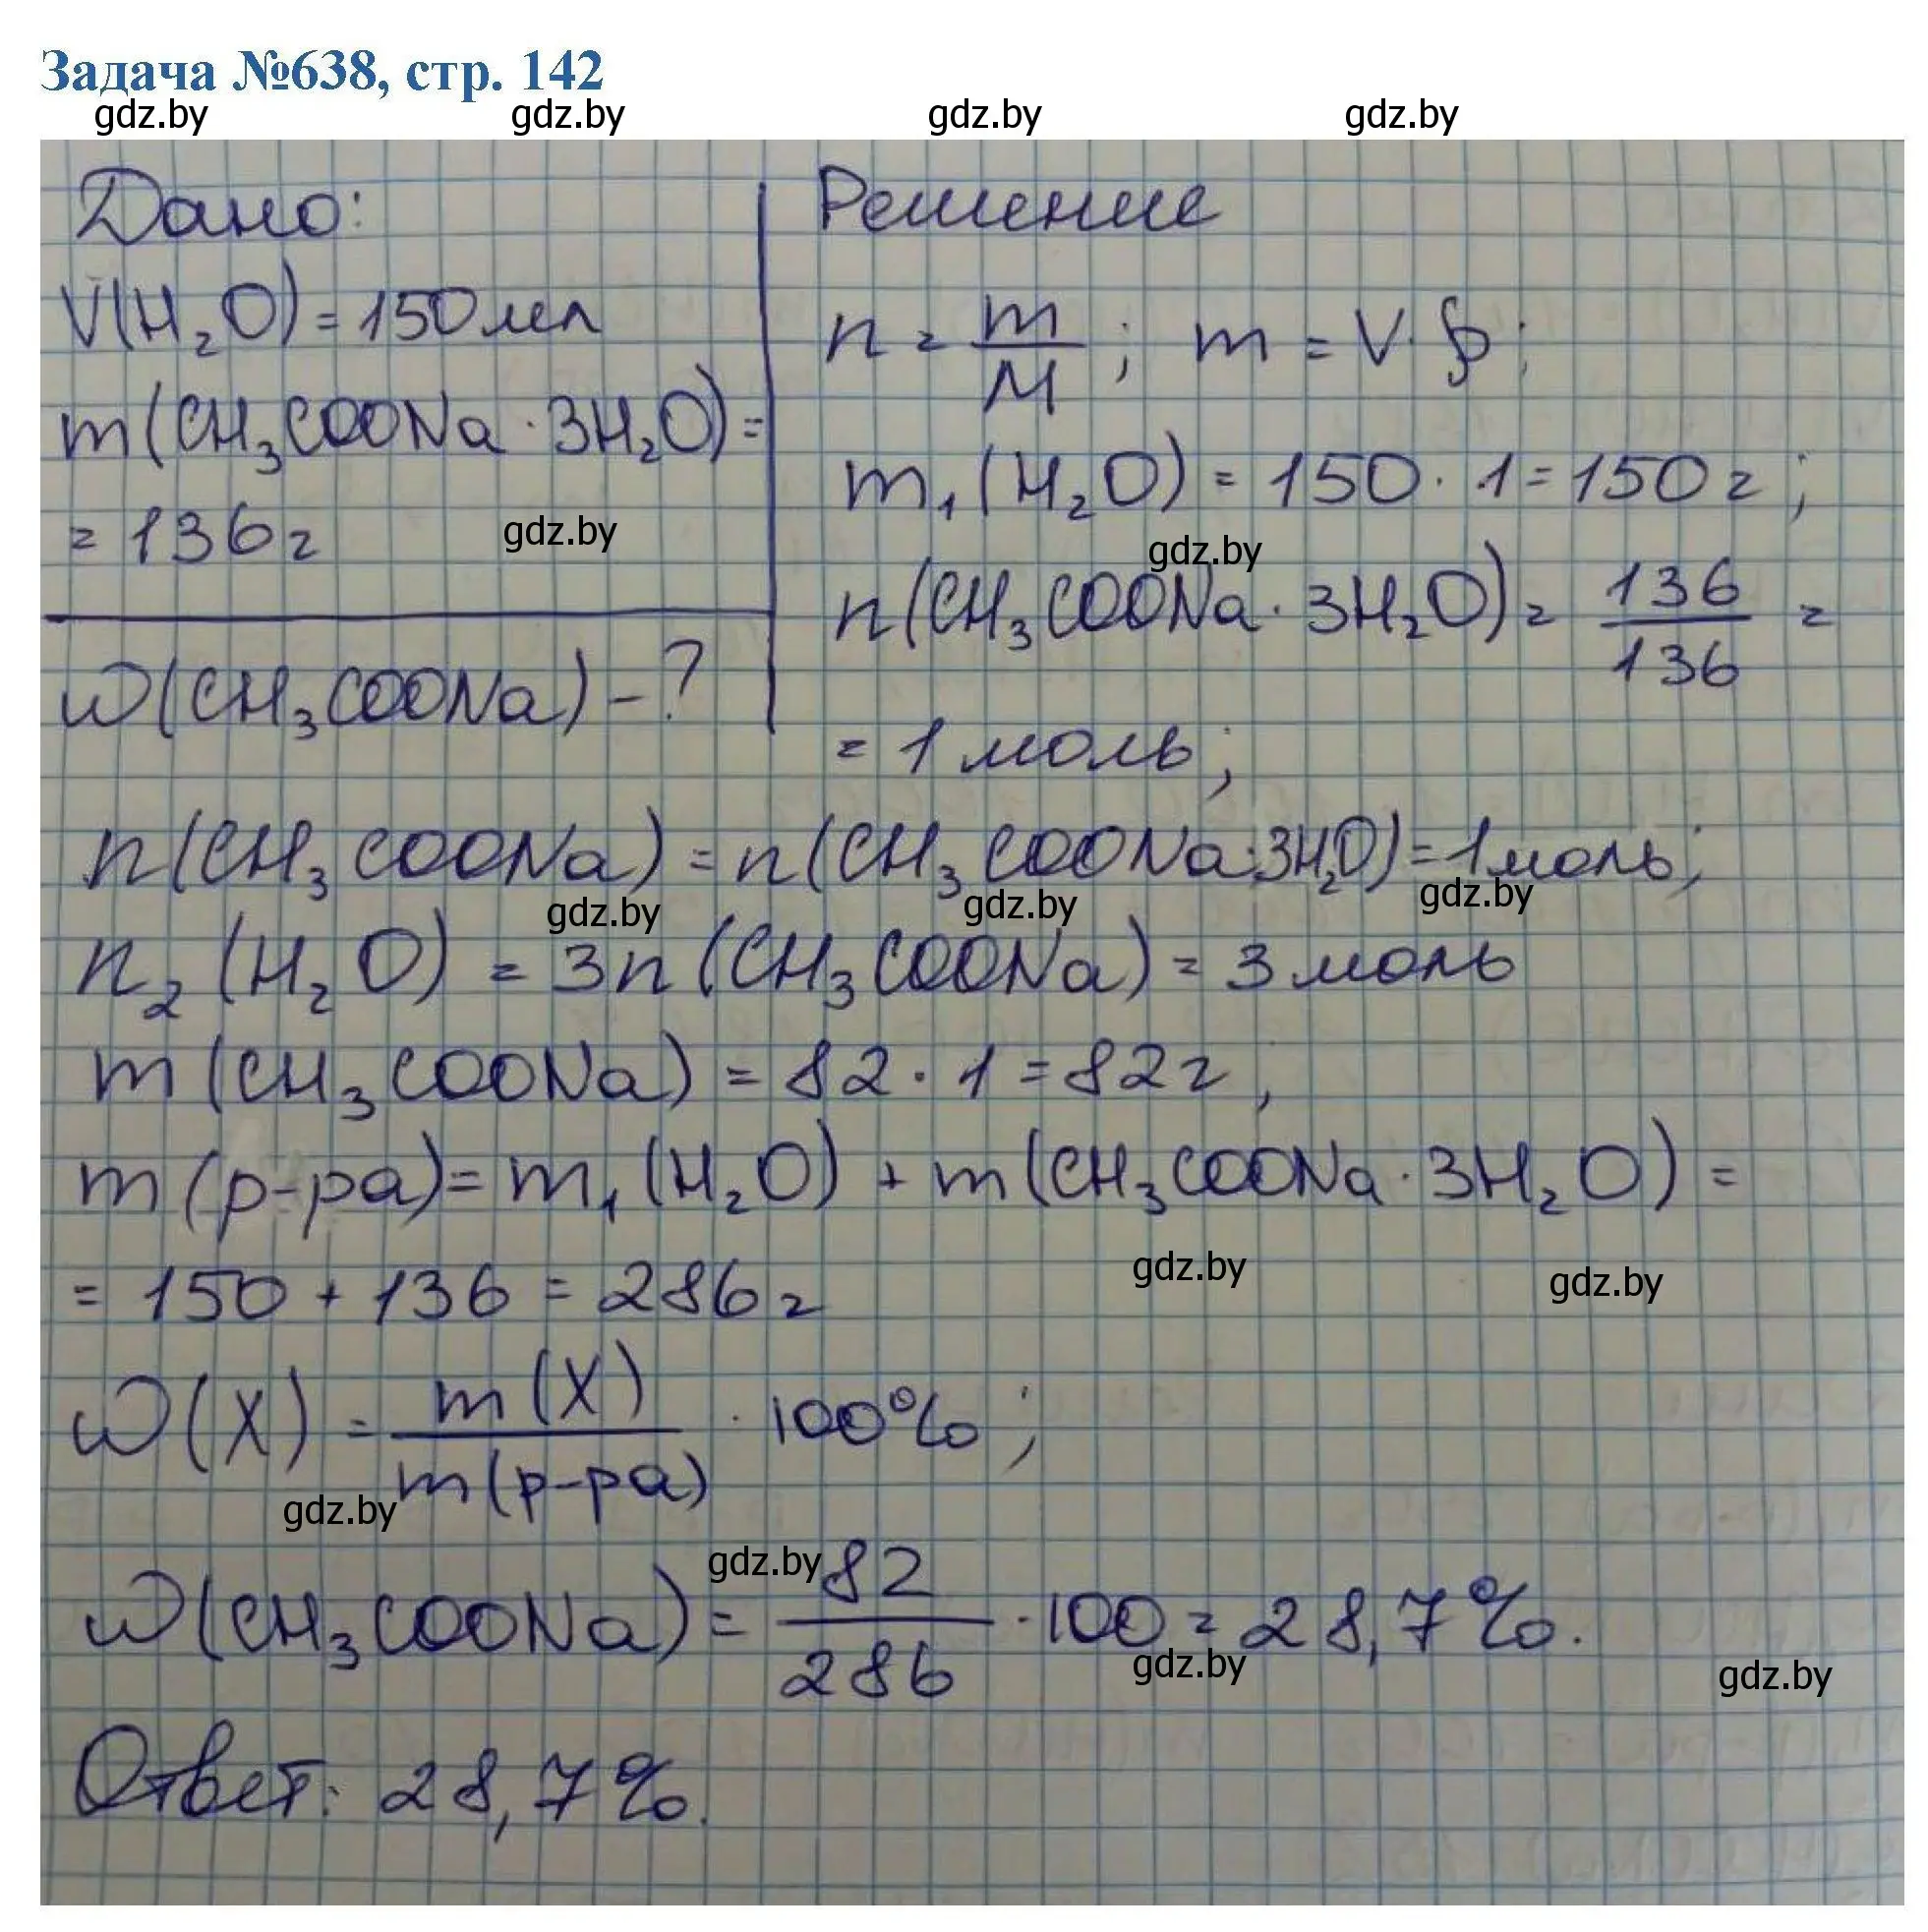 Задача №638, стр. 142
gdz.by gdz.by gdz.by gdz.by
Дано:
V(H₂O) = 150 мл
m(CH₃COONa · 3H₂O) =
= 136 г
gdz.by
ω(CH₃COONa) - ?
Решение
n = m/M ; m = V · ρ ;
m₁(H₂O) = 150 · 1 = 150 г ;
gdz.by
n(CH₃COONa · 3H₂O) = 136/136 =
= 1 моль ;
n(CH₃COONa) = n(CH₃COONa · 3H₂O) = 1 моль ;
gdz.by gdz.by gdz.by
n₂(H₂O) = 3n(CH₃COONa) = 3 моль
m(CH₃COONa) = 82 · 1 = 82 г ,
m(р-ра) = m₁(H₂O) + m(CH₃COONa · 3H₂O) =
gdz.by gdz.by
= 150 + 136 = 286 г
ω(X) = m(X)/m(р-ра) · 100% ;
gdz.by
gdz.by
ω(CH₃COONa) = 82/286 · 100 = 28,7%.
gdz.by gdz.by
Ответ: 28,7%.